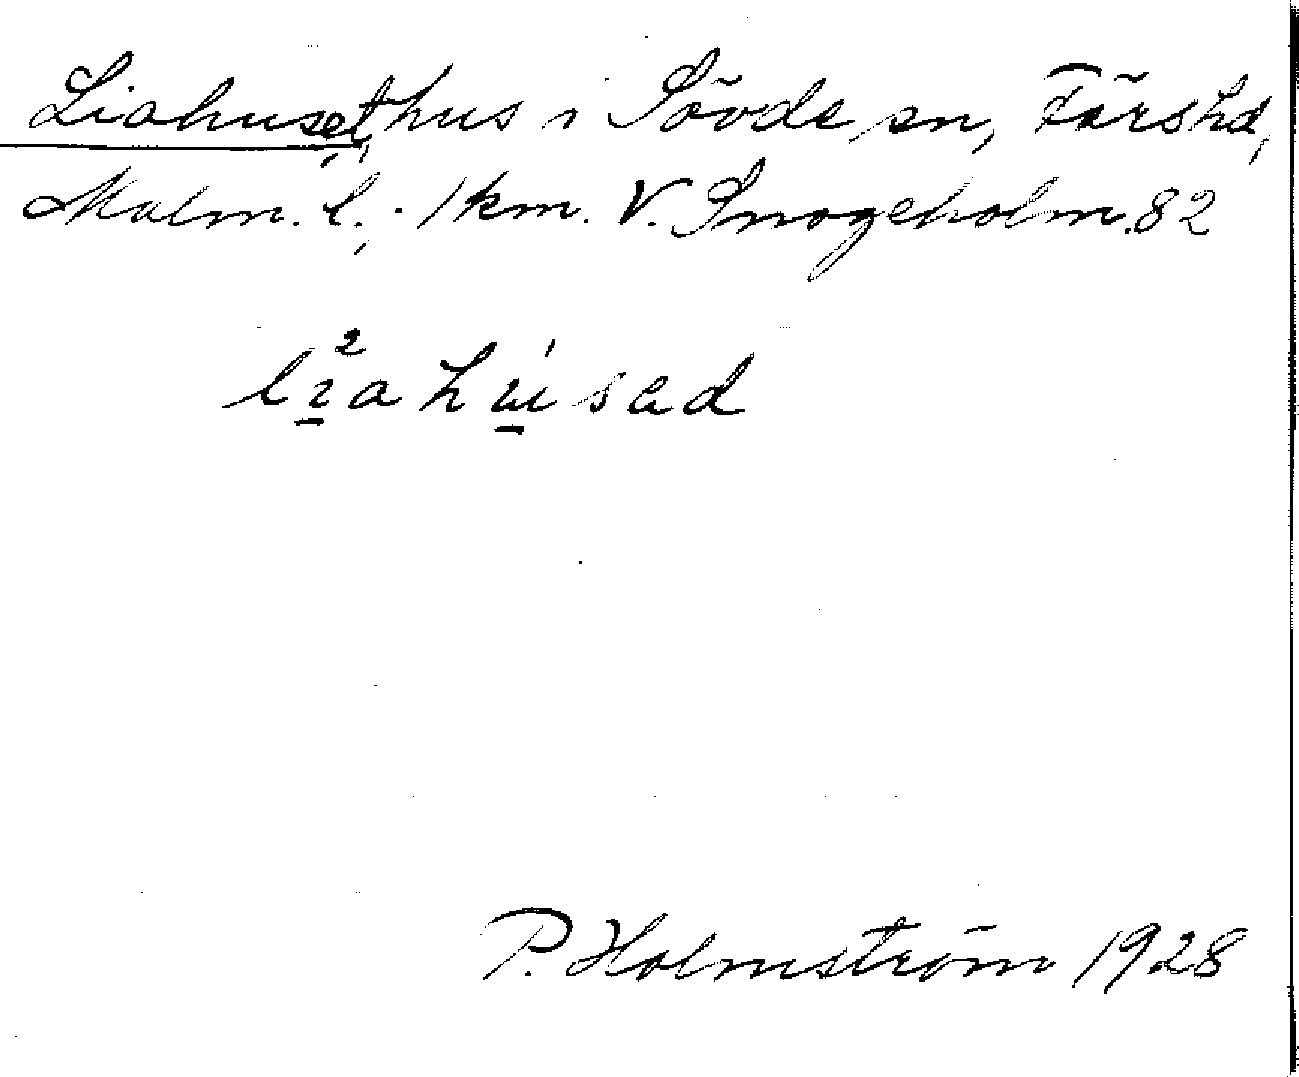 Liahuset, hus i Sövde sn, Färs hd,
Malm. l.; 1 km. V. Snogeholm. 82
li²ahu̱'sad
P. Holmström 1928